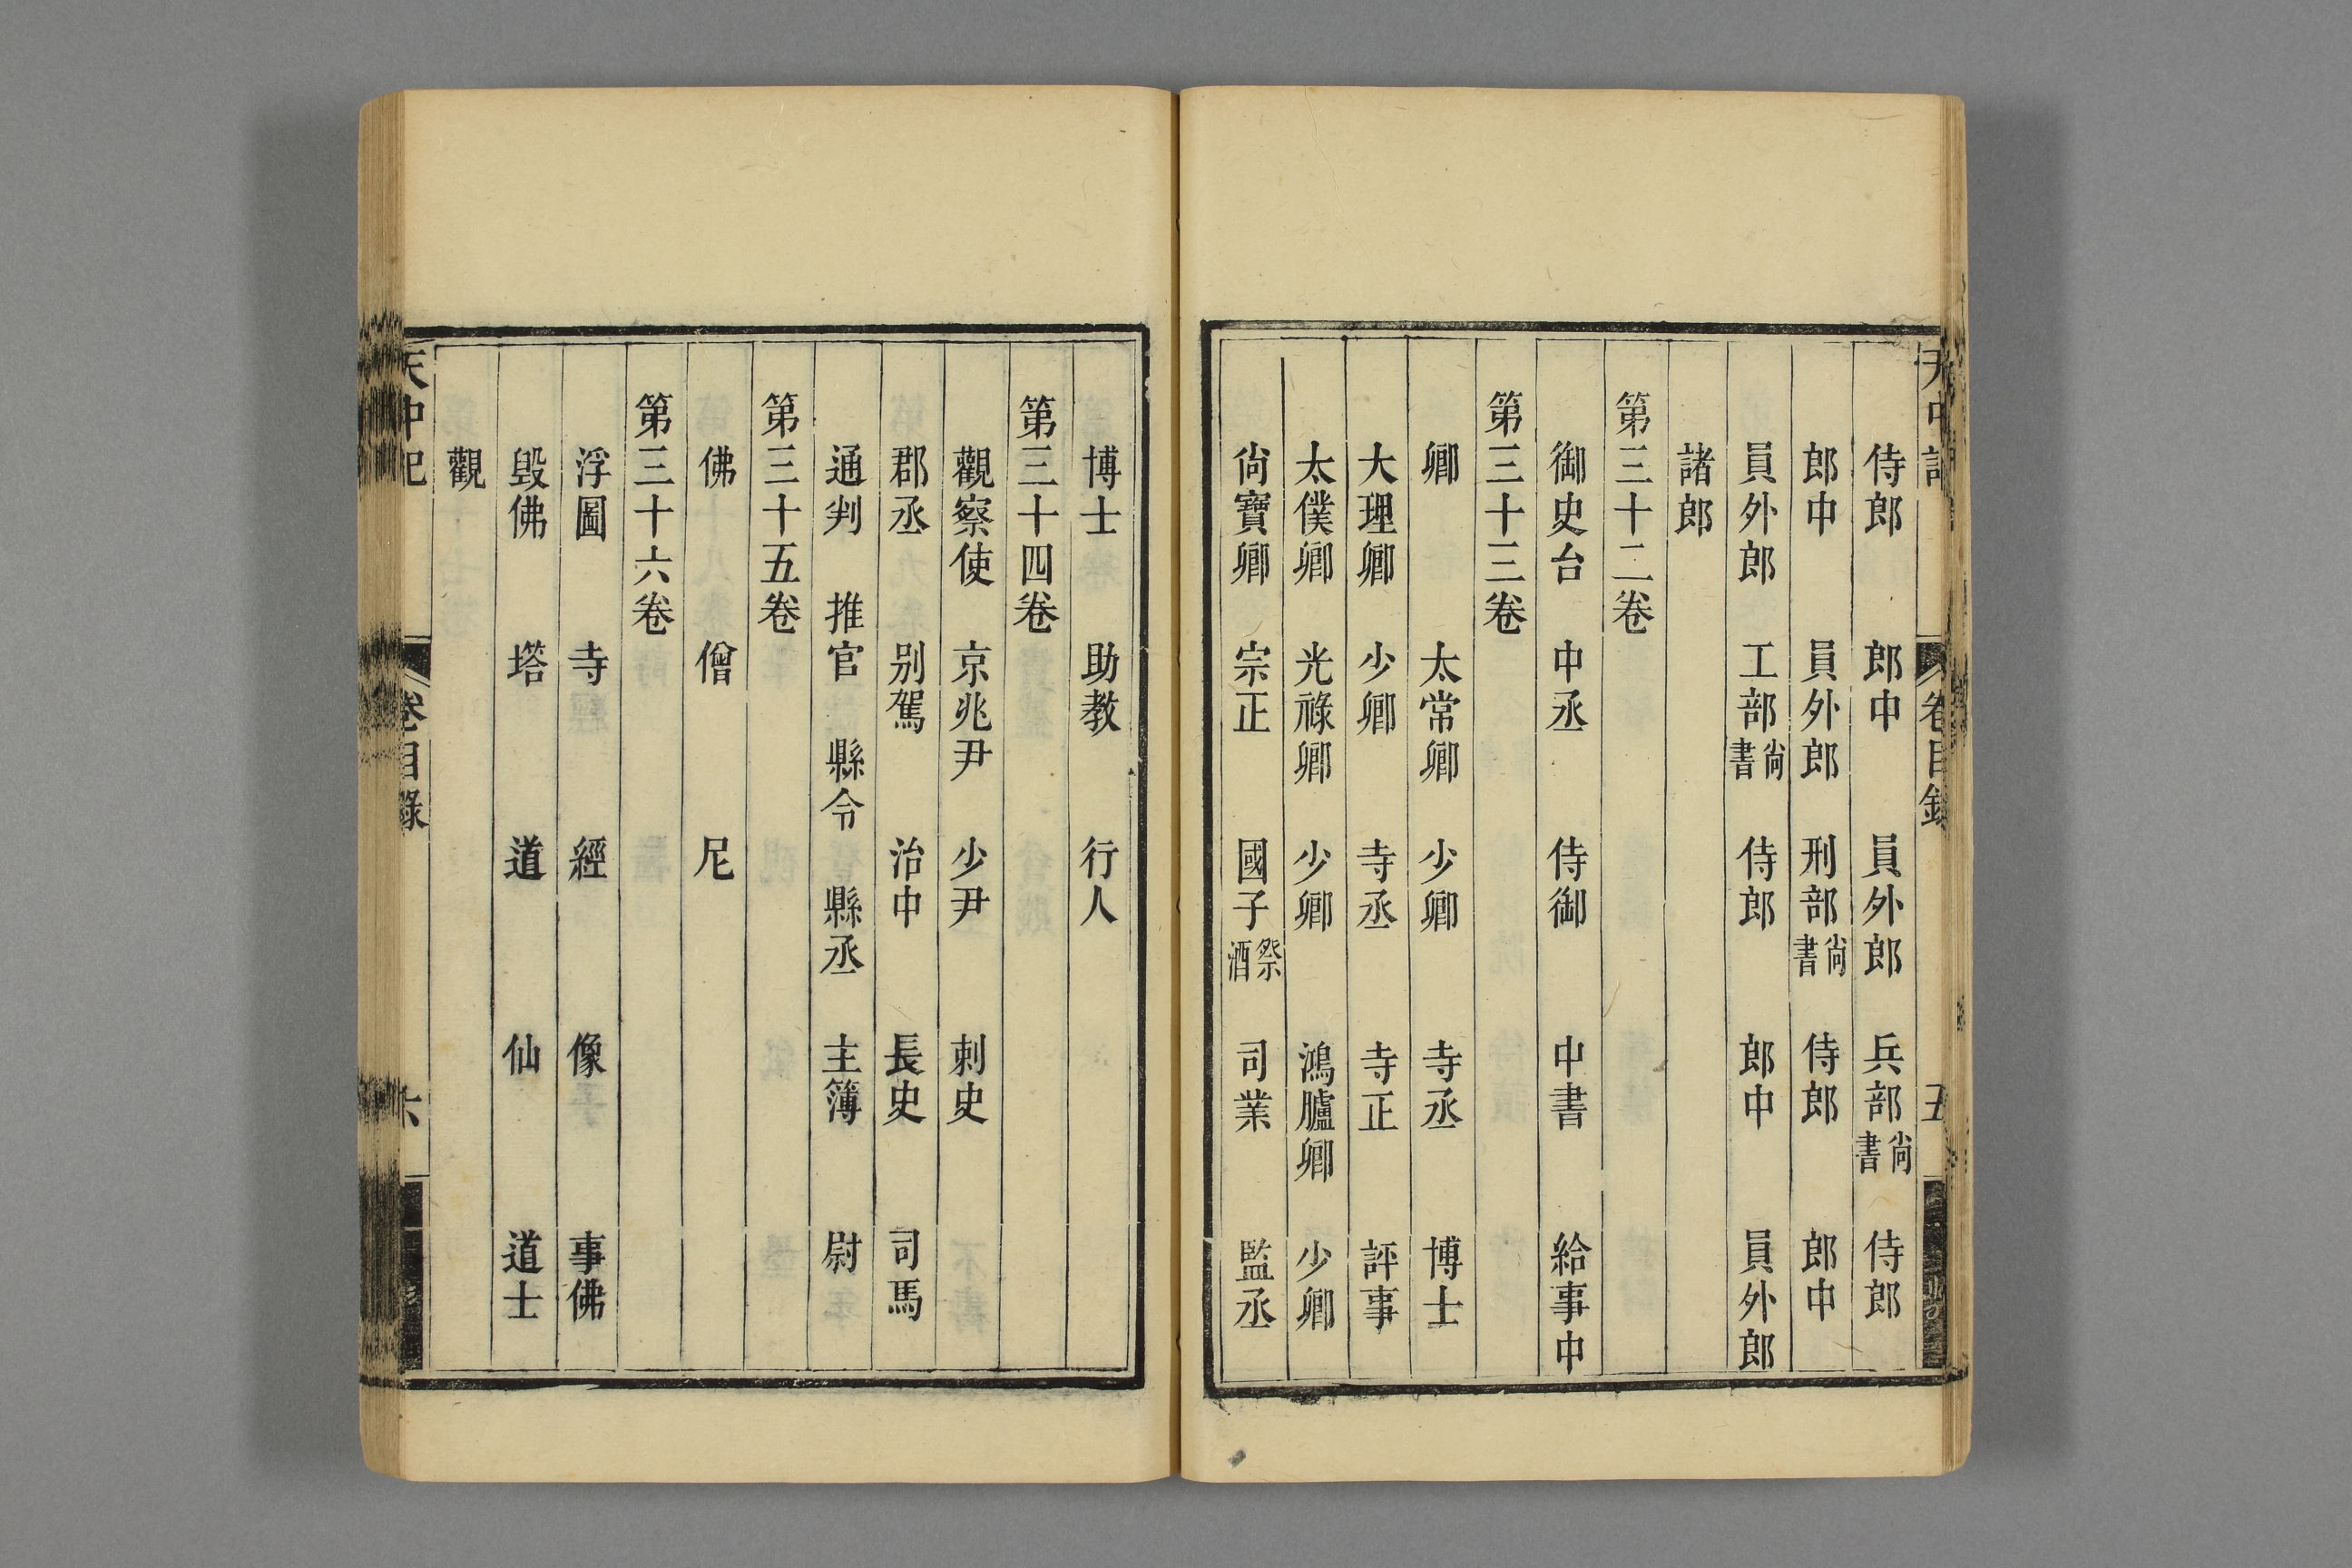 天中記 卷目錄 五
侍郎 郎中 員外郎 兵部尚書 侍郎
郎中 員外郎 刑部尚書 侍郎 郎中
員外郎 工部尚書 侍郎 郎中 員外郎
諸郎
第三十二卷
御史台 中丞 侍御 中書 給事中
第三十三卷
卿 太常卿 少卿 寺丞 博士
大理卿 少卿 寺丞 寺正 評事
太僕卿 光祿卿 少卿 鴻臚卿 少卿
尙寶卿 宗正 國子祭酒 司業 監丞
博士 助教 行人
第三十四卷
觀察使 京兆尹 少尹 刺史
郡丞 别駕 治中 長史 司馬
通判 推官 縣令 縣丞 主簿 尉
第三十五卷
佛 僧 尼
第三十六卷
浮圖 寺 經 像 事佛
毀佛 塔 道 仙 道士
觀
天中記 卷目錄 六